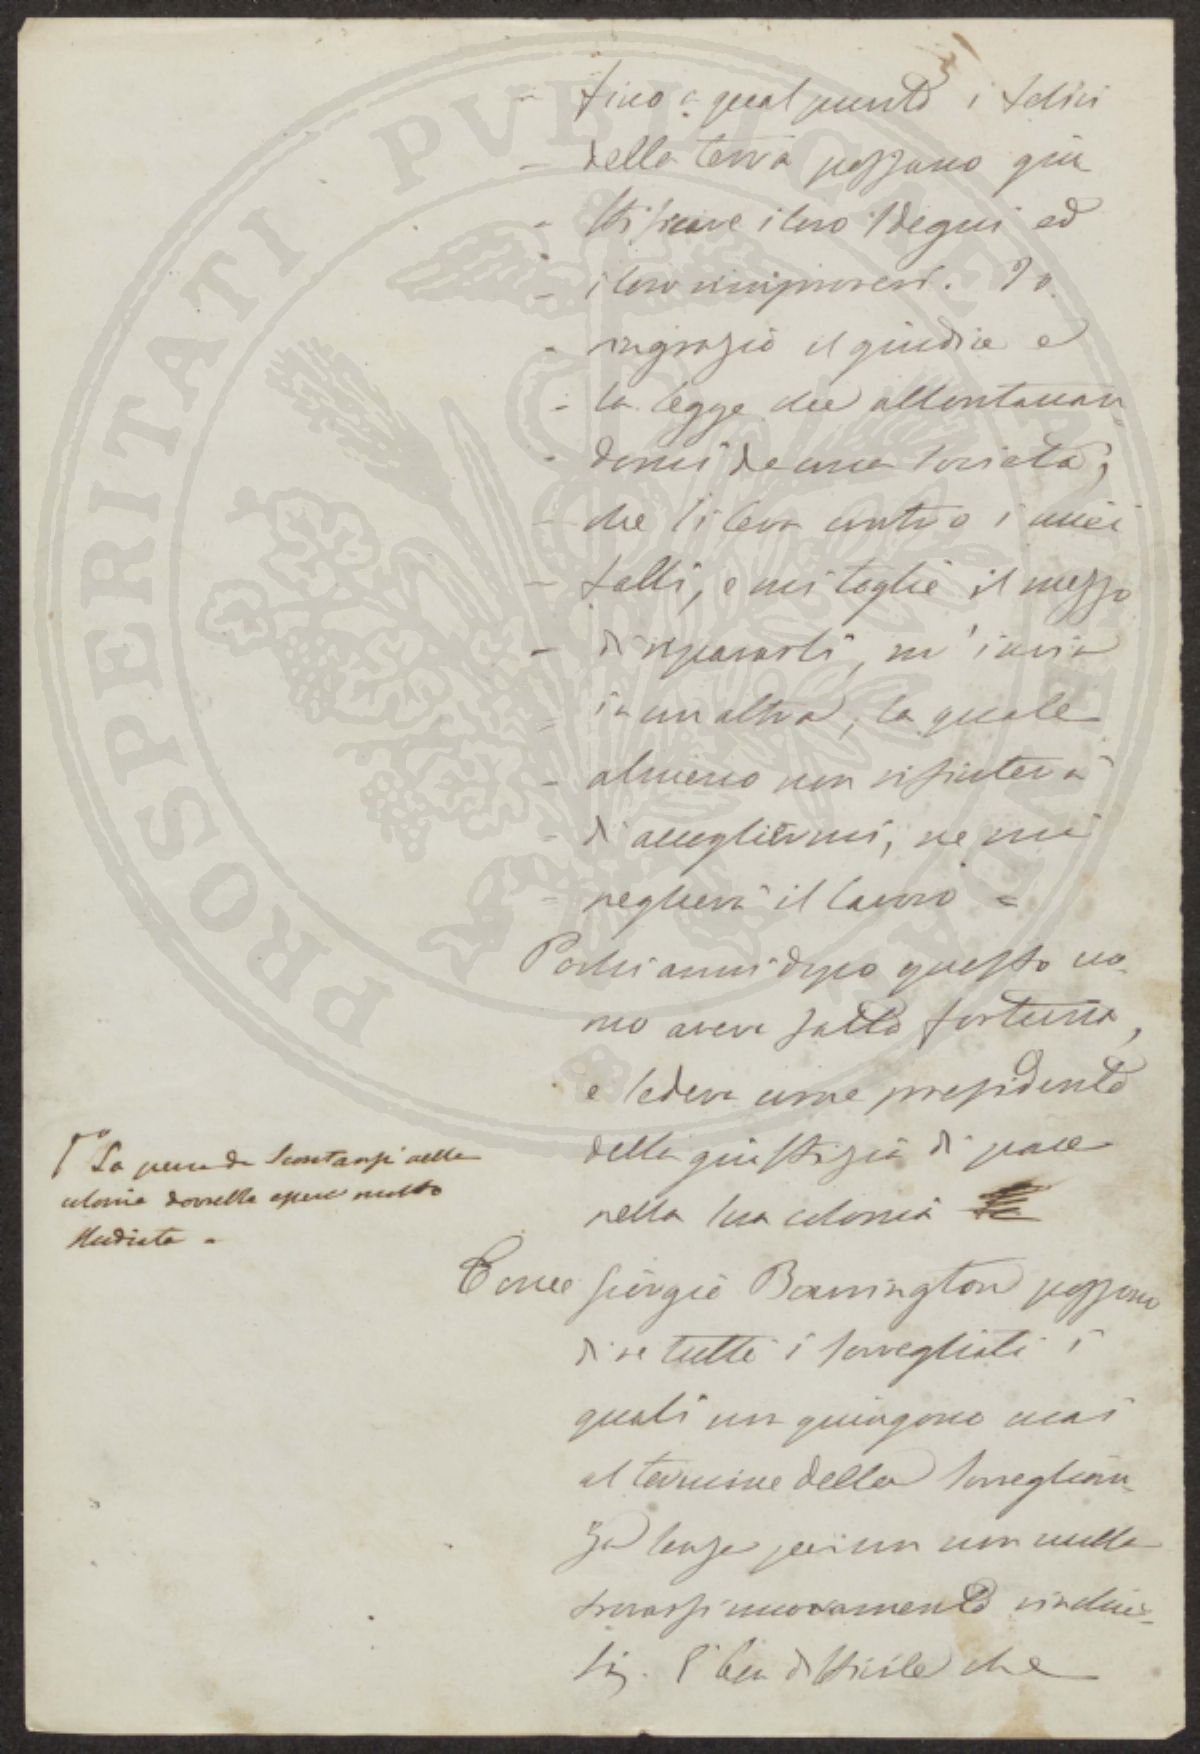 - fino a qual punto i felici
- della terra possano giu
- stificare i loro sdegni ed
- i loro rimproveri. Io
- ringrazio il giudice e
- la legge che allontanan-
- domi da una società,
- che si leva contro i miei
- falli, e mi toglie il mezzo
- di ripararli, m'invia
- in un altra, la quale
- almeno non rifiuterà
- di accogliermi, ne mi
- negherà il lavoro =
Pochi anni dopo questo uo-
mo aveva fatto fortuna,
e sedeva come presidente
della giustizia di pace
nella sua colonia
La pena da scontarsi nella
colonia dovrebbe essere molto
studiata -
Come Giorgio Barrington possono
dire tutti i sorvegliati i
quali non giungono mai
al termine della sorveglian-
za senza per un non nulla
trovarsi nuovamente
È ben difficile che
PROSPERITATI PVBLICAE